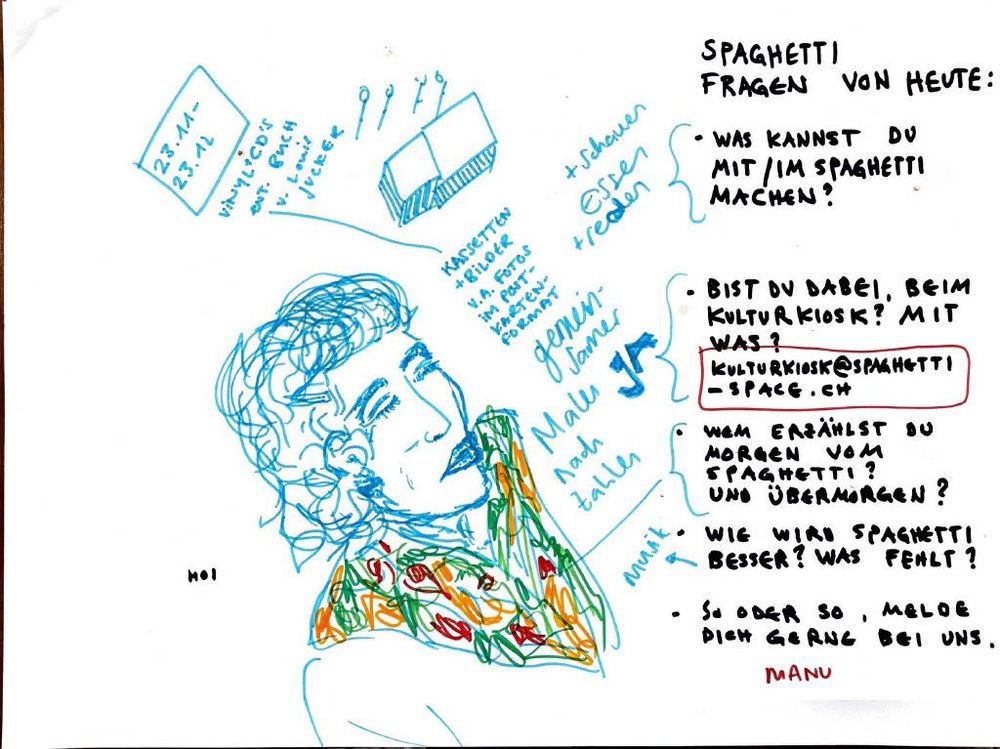 SPAGHETTI
FRAGEN VON HEUTE:
• WAS KANNST DU
MIT/IM SPAGHETTI
MACHEN?
• BIST DU DABEI, BEIM
KULTURKIOSK? MIT
WAS?
KULTURKIOSK@SPAGHETTI
-SPACE.CH
• WEM ERZÄHLST DU
MORGEN VOM
SPAGHETTI?
UND ÜBERMORGEN?
• WIE WIRD SPAGHETTI
BESSER? WAS FEHLT?
• SO ODER SO, MELDE
DICH GERNE BEI UNS.
MANU
23.11-
23.12
VINYL/CD'S
ent. BUCH
v. LOUIS
JUCKER
KASSETTEN
+ BILDER
V.A. FOTOS
IM POST-
KARTEN-
FORMAT
+ schauen
essen
+ reden
JA
gemein-
samer
Malen
nach
zahlen
Musik
HOI